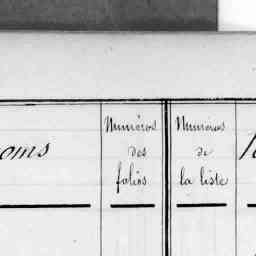 oms
Numéros
des
folios
Numéros
de
la liste